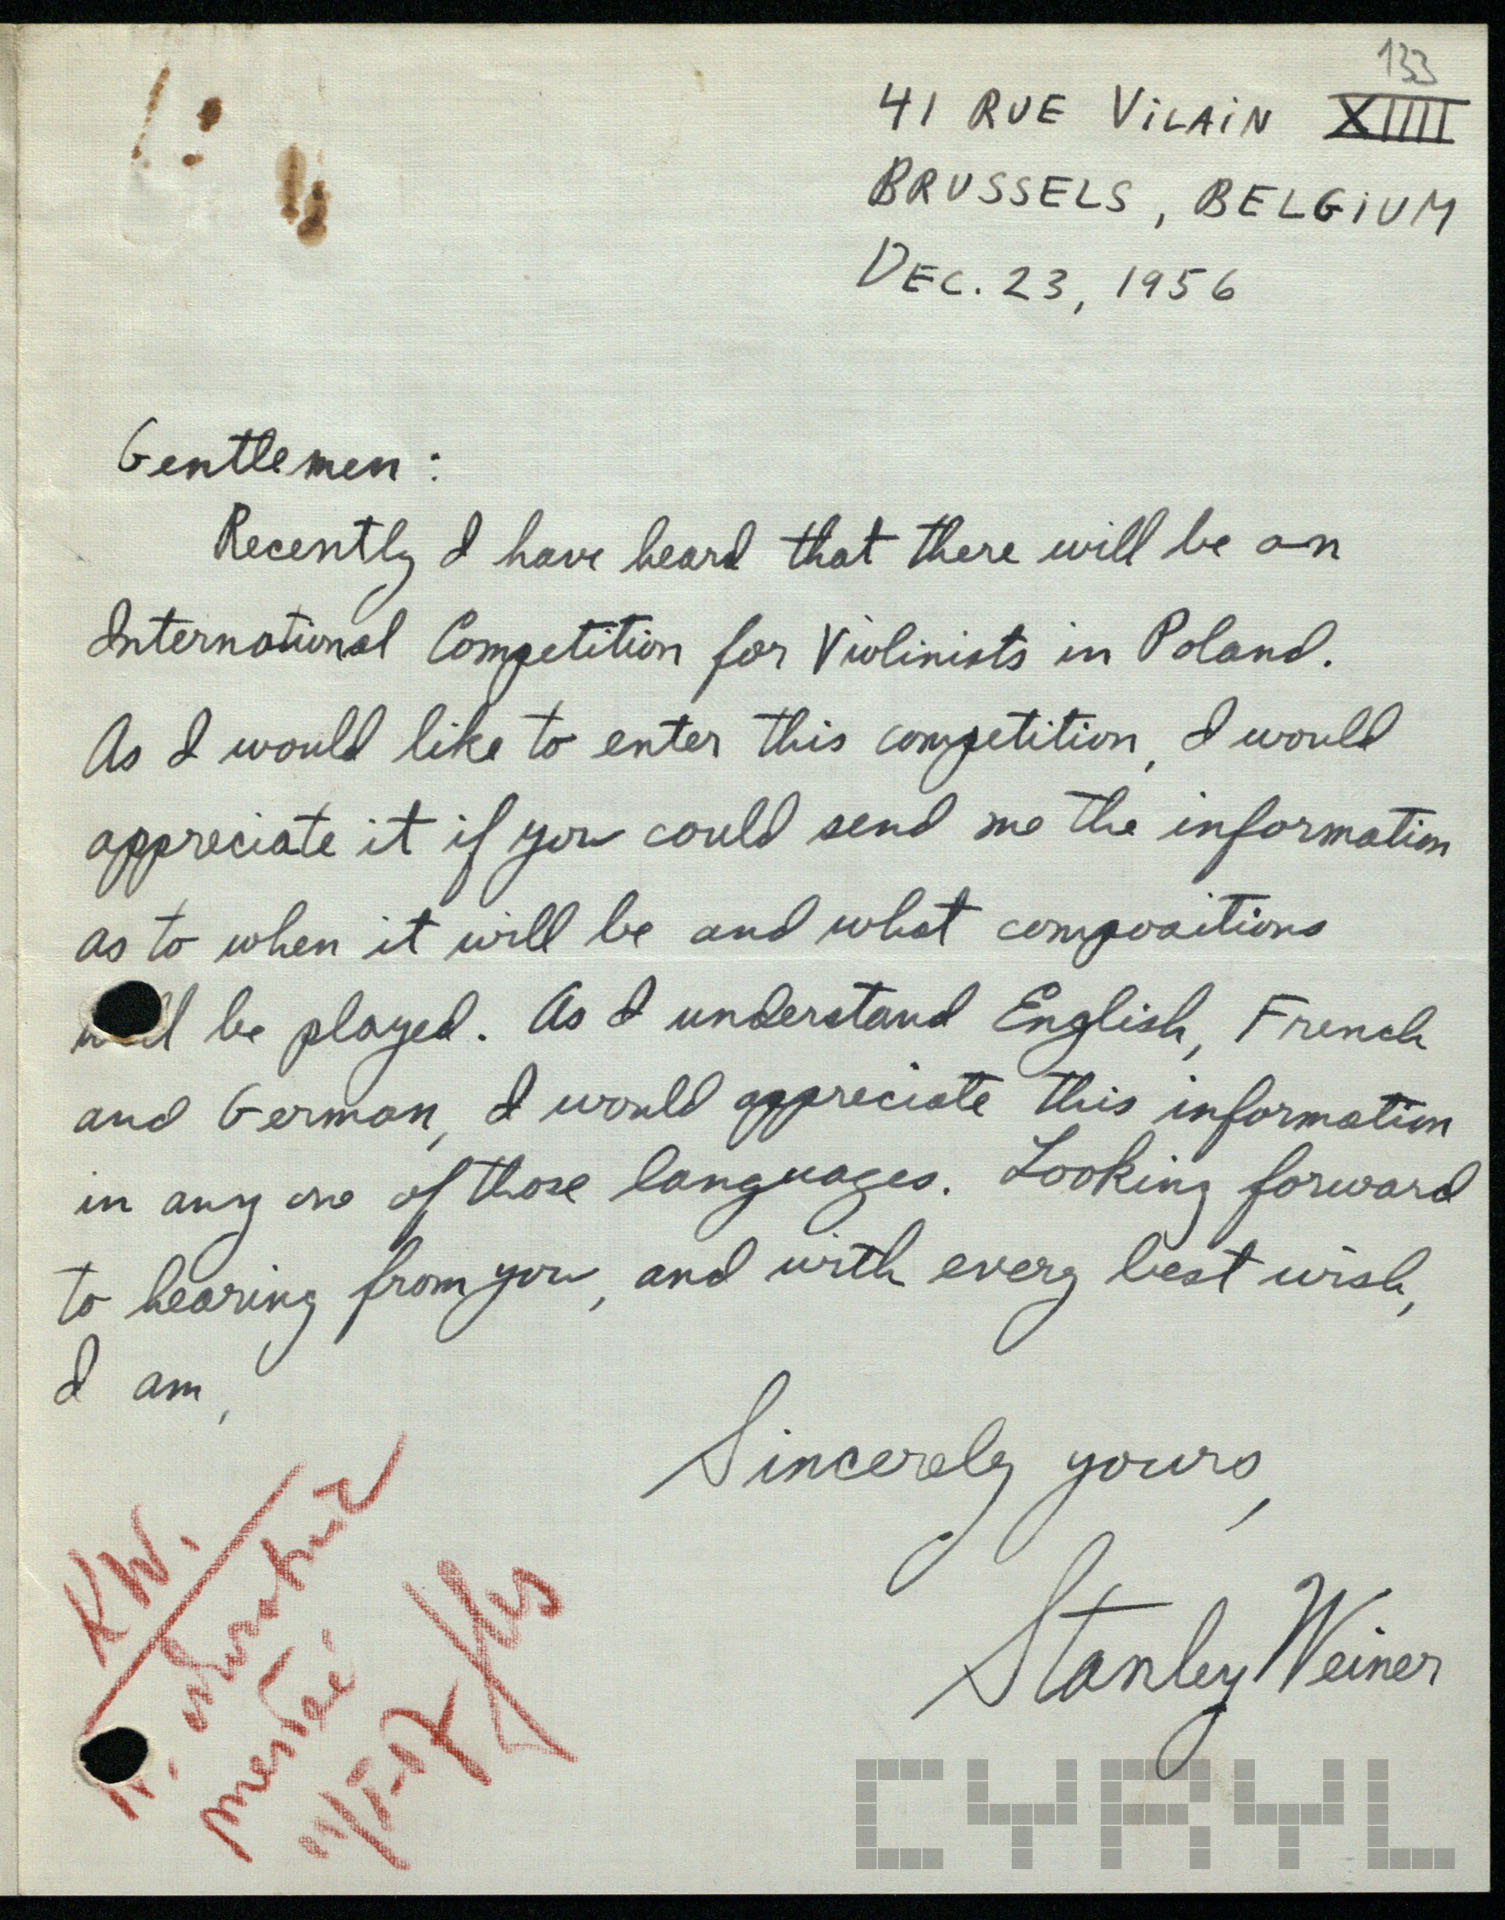 133
41 RUE VILAIN XIIII
BRUSSELS, BELGIUM
DEC. 23, 1956
Gentlemen:
Recently I have heard that there will be an
International Competition for Violinists in Poland.
As I would like to enter this competition, I would
appreciate it if you could send me the information
as to when it will be and what compositions
will be played. As I understand English, French
and German, I would appreciate this information
in any one of those languages. Looking forward
to hearing from you, and with every best wish,
I am,
Sincerely yours,
Stanley Weiner
KW.
CYRYL